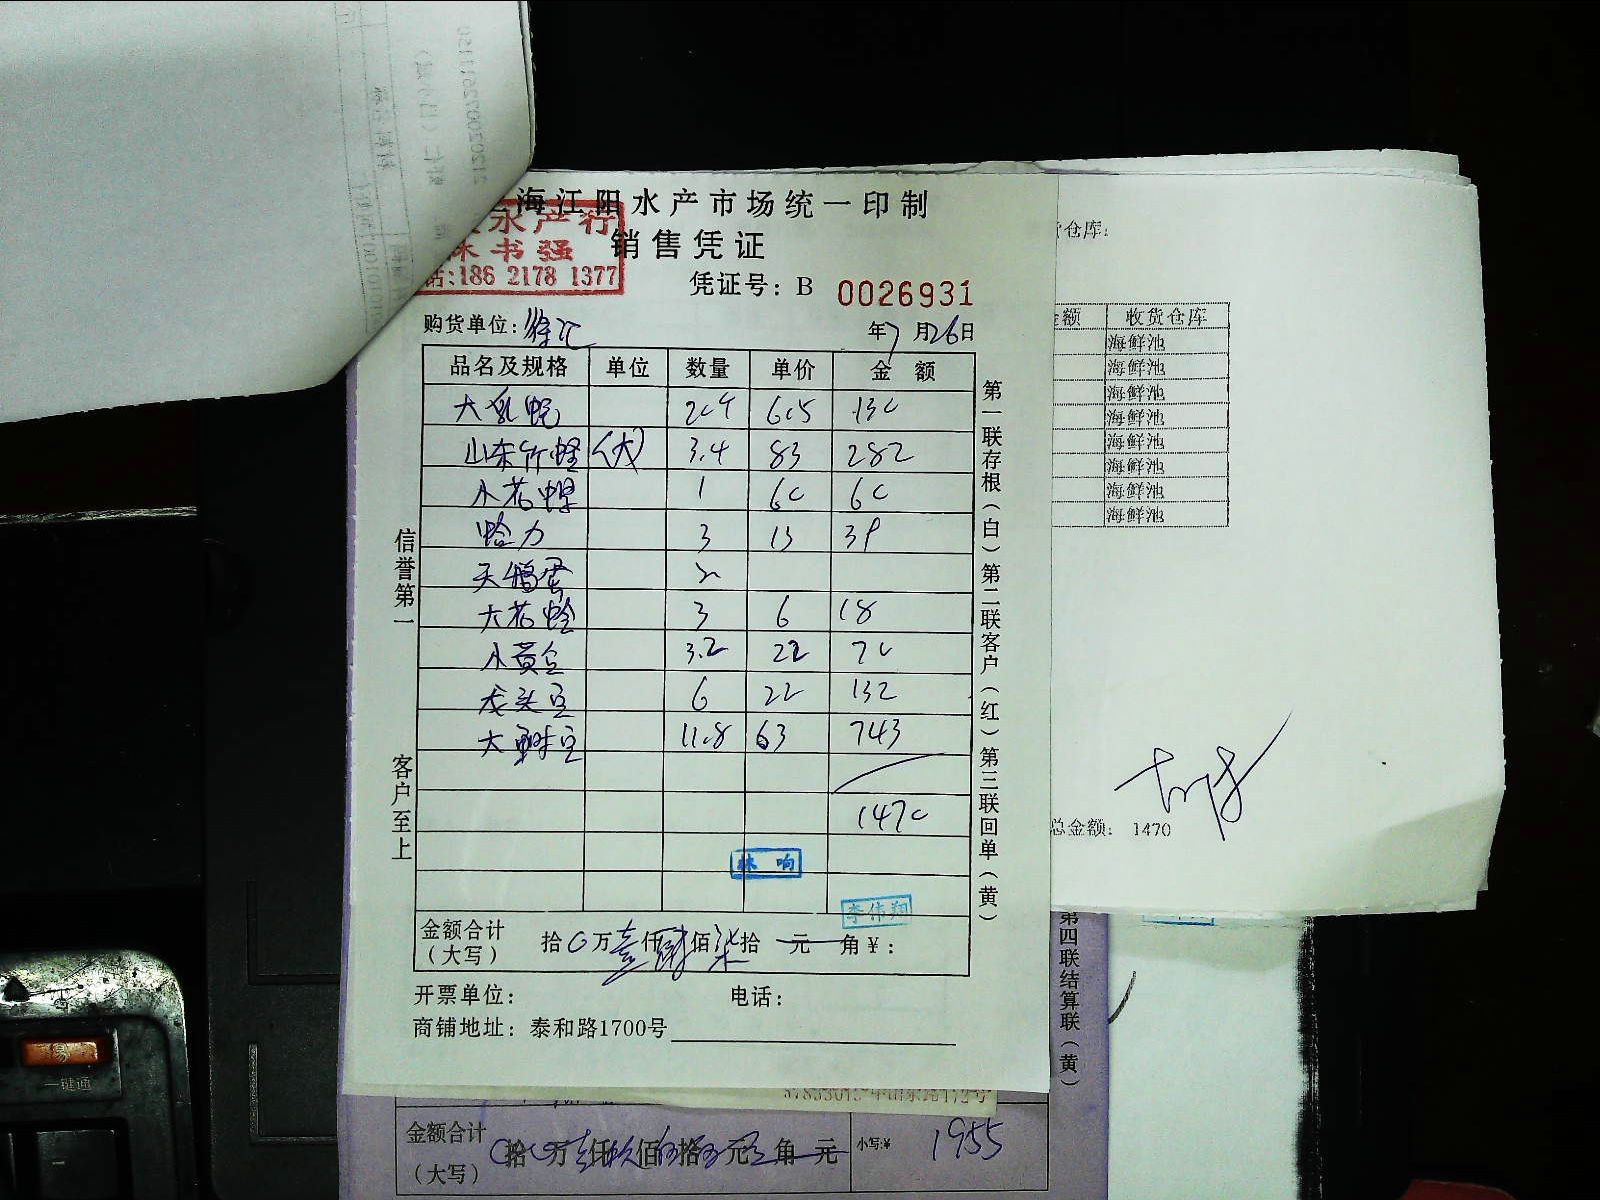 海江阳水产市场统一印制
水产行
书强
话:186 2178 1377
销售凭证
凭证号: B 0026931
购货单位: 徐汇 年7月26日
品名及规格 单位 数量 单价 金额
大乳蛏 2.4 65 130
山东竹蛏 (大) 3.4 83 282
小花螺 1 60 60
蛤力 3 13 39
天鹅蛋
大花蛤 3 6 18
小黄 3.2 22 70
龙头 6 22 132
大 11.8 63 743
1470
响
李伟翔
金额合计(大写) 拾0万壹仟肆佰柒拾元角¥:
开票单位: 电话:
商铺地址: 泰和路1700号
信誉第一
客户至上
第一联存根(白)第二联客户(红)第三联回单(黄)
仓库:
金额 收货仓库
海鲜池
海鲜池
海鲜池
海鲜池
海鲜池
海鲜池
海鲜池
海鲜池
总金额: 1470
第四联结算联(黄)
金额合计(大写) 拾万仟佰拾元角 小写:¥ 1955
一键通